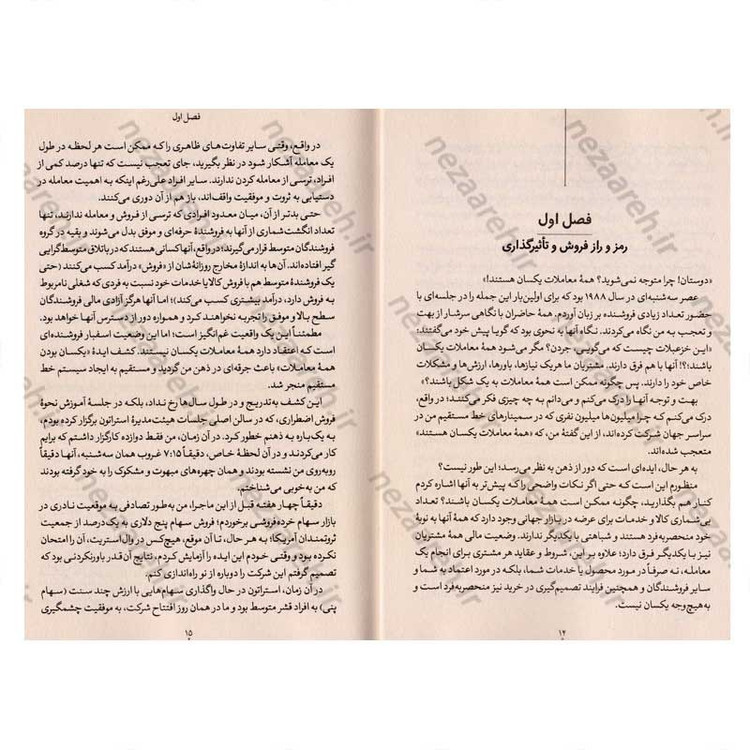 فصل اول
رمز و راز فروش و تأثیرگذاری
«دوستان! چرا متوجه نمی‌شوید؟ همهٔ معاملات یکسان هستند!»
عصر سه‌شنبه‌ای در سال ۱۹۸۸ بود که برای اولین‌بار این جمله را در جلسه‌ای با
حضور تعداد زیادی فروشنده بر زبان آوردم. همهٔ حاضران با نگاهی سرشار از بهت
و تعجب به من نگاه می‌کردند. نگاه آنها به نحوی بود که گویا پیش خود می‌گفتند:
«این خزعبلات چیست که می‌گویی، جردن؟ مگر می‌شود همهٔ معاملات یکسان
باشند؟!؟ آنها با هم فرق دارند. مشتریان ما هریک نیازها، باورها، ارزش‌ها و مشکلات
خاص خود را دارند. پس چگونه ممکن است همهٔ معاملات به یک شکل باشند؟»
بهت و توجه آنها را درک می‌کنم و می‌دانم به چه چیزی فکر می‌کنند؛ در واقع،
درک می‌کنم که چرا میلیون‌ها میلیون نفری که در سمینارهای خط مستقیم من در
سراسر جهان شرکت کرده‌اند، از این گفتهٔ من، که «همهٔ معاملات یکسان هستند»
متعجب شده‌اند.
به هر حال، ایده‌ای است که دور از ذهن به نظر می‌رسد؛ این طور نیست؟
منظورم این است که حتی اگر نکات واضحی را که پیش‌تر به آنها اشاره کردم
کنار هم بگذارید، چگونه ممکن است همهٔ معاملات یکسان باشند؟ تعداد
بی‌شماری کالا و خدمات برای عرضه در بازار جهانی وجود دارد که همهٔ آنها به نوبهٔ
خود منحصربه‌فرد هستند و شباهتی با یکدیگر ندارند. وضعیت مالی همهٔ مشتریان
نیز با یکدیگر فرق دارد؛ علاوه بر این، شروط و عقاید هر مشتری برای انجام یک
معامله، نه صرفاً در مورد محصول یا خدمات شما، بلکه در مورد اعتماد به شما و
سایر فروشندگان و همچنین فرایند تصمیم‌گیری در خرید نیز منحصربه‌فرد است و
به‌هیچ‌وجه یکسان نیست.
۱۴
فصل اول
در واقع، وقتی سایر تفاوت‌های ظاهری را که ممکن است هر لحظه در طول
یک معامله آشکار شود در نظر بگیرید، جای تعجب نیست که تنها درصد کمی از
افراد، ترسی از معامله کردن ندارند. سایر افراد علی‌رغم اینکه به اهمیت معامله در
دستیابی به ثروت و موفقیت واقف‌اند، باز هم از آن دوری می‌کنند.
حتی بدتر از آن، میان معدود افرادی که ترسی از فروش و معامله ندارند، تنها
تعداد انگشت‌شماری از آنها به فروشنده‌ای حرفه‌ای و موفق بدل می‌شوند و بقیه در گروه
فروشندگان متوسط قرار می‌گیرند؛ در واقع، آنها کسانی هستند که در باتلاق متوسط‌گرایی
گیر افتاده‌اند. آن‌ها به اندازهٔ مخارج روزانهٔ‌شان از «فروش» درآمد کسب می‌کنند (حتی
یک فروشندهٔ متوسط هم با فروش کالا یا خدمات خود نسبت به فردی که شغلی نامربوط
با فروش دارد، درآمد بیشتری کسب می‌کند)؛ اما آنها هرگز آزادی مالی فروشندگان
سطح بالا و موفق را تجربه نخواهند کرد و همواره دور از دسترس آنها خواهد بود.
مطمئناً این یک واقعیت غم‌انگیز است؛ اما این وضعیت اسفبار فروشنده‌ای
است که اعتقاد دارد همهٔ معاملات یکسان نیستند. کشف ایدهٔ «یکسان بودن
همهٔ معاملات» باعث جرقه‌ای در ذهن من گردید و مستقیم به ایجاد سیستم خط
مستقیم منجر شد.
این کشف به‌تدریج و در طول سال‌ها رخ نداد، بلکه در جلسهٔ آموزش نحوهٔ
فروش اضطراری، که در سالن اصلی جلسات هیئت‌مدیرهٔ استراتون برگزار کرده بودم،
به یک‌باره به ذهنم خطور کرد. در آن زمان، من فقط دوازده کارگزار داشتم که برایم
کار می‌کردند و در آن لحظهٔ خاص، دقیقاً ۷:۱۵ غروب همان سه‌شنبه، آنها دقیقاً
روبه‌روی من نشسته بودند و همان چهره‌های مبهوت و مشکوک را به خود گرفته بودند
که من به‌خوبی می‌شناختم.
دقیقاً چهار هفته قبل از این ماجرا، من به‌طور تصادفی به موقعیت نادری در
بازار سهام خرده‌فروشی برخوردم؛ فروش سهام پنج دلاری به یک‌درصد از جمعیت
ثروتمندان آمریکا؛ به هر حال، تا آن موقع، هیچ‌کس در وال‌استریت، آن را امتحان
نکرده بود و وقتی خودم این ایده را آزمایش کردم، نتایج آن‌قدر باورنکردنی بود که
تصمیم گرفتم این شرکت را دوباره از نو راه‌اندازی کنم.
در آن زمان، استراتون در حال واگذاری سهام‌هایی با ارزش چند سنت (سهام
پنی) به افراد قشر متوسط بود و ما در همان روز افتتاح شرکت، به موفقیت چشمگیری
۱۵
nezaareh.ir
nezaareh.ir
nezaareh.ir
nezaareh.ir